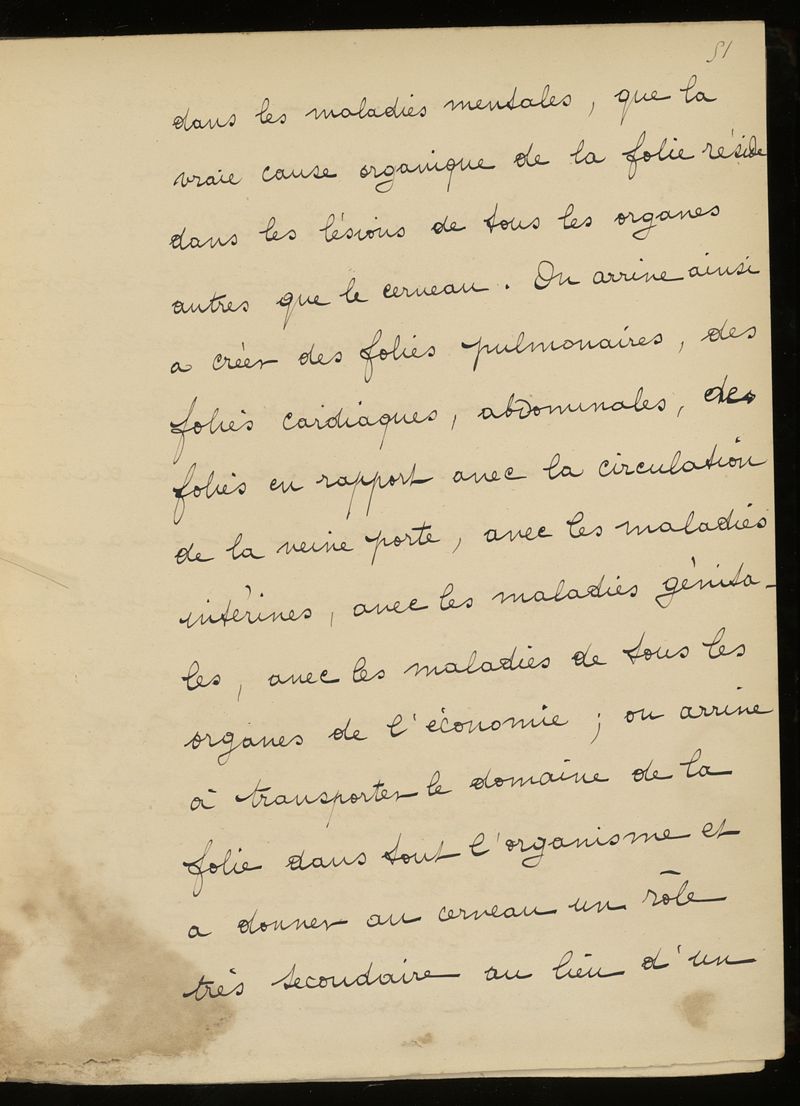 51
dans les maladies mentales, que la
vraie cause organique de la folie réside
dans les lésions de tous les organes
autres que le cerveau. On arrive ainsi
a créer des folies pulmonaires, des
folies cardiaques, abdominales, des
folies en rapport avec la circulation
de la veine porte, avec les maladies
intérines, avec les maladies génita-
les, avec les maladies de tous les
organes de l'économie ; on arrive
à transporter le domaine de la
folie dans tout l'organisme et
a donner au cerveau un rôle
très secondaire au lieu d'un